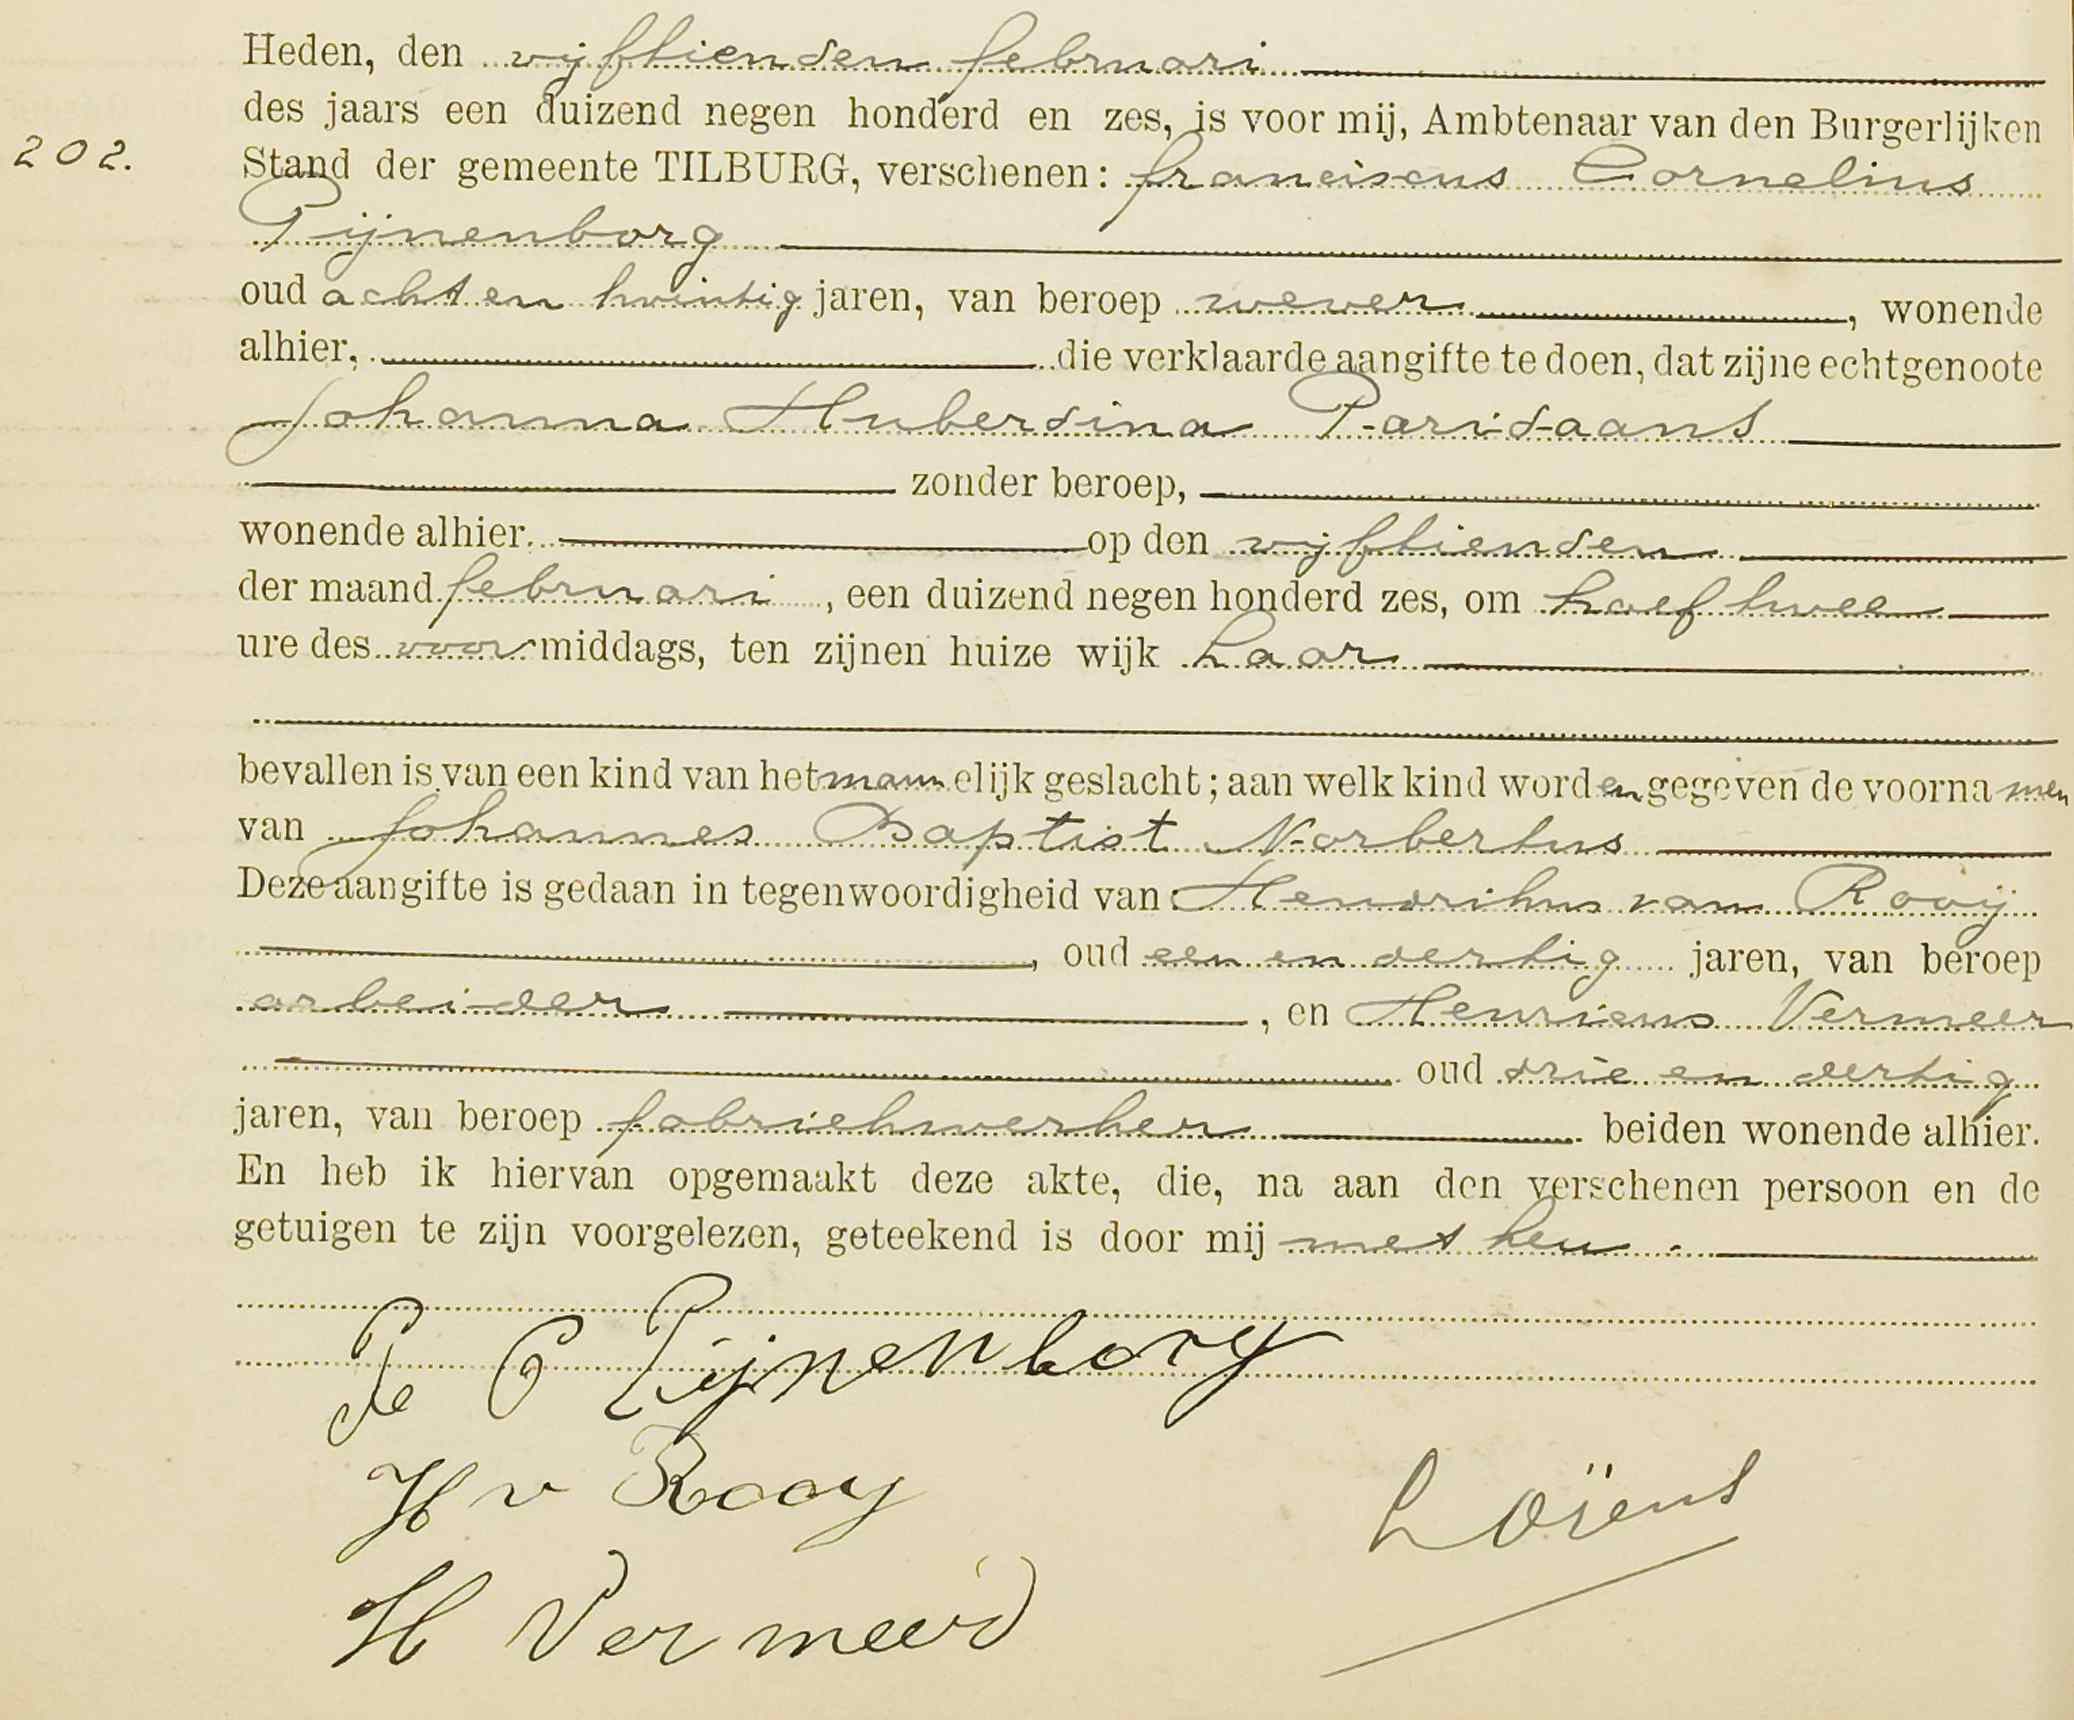 Heden, den vijftienden februari
des jaars een duizend negen honderd en zes, is voor mij, Ambtenaar van den Burgerlijken
202.
Stand der gemeente TILBURG, verschenen: franciscus Cornelius
Pijnenborg
oud acht en twintig jaren, van beroep wever, wonende
alhier, die verklaarde aangifte te doen, dat zijne echtgenoote
Johanna Huberdina Paridaans
zonder beroep,
wonende alhier. op den vijftienden
der maand februari, een duizend negen honderd zes, om half twee
ure des voormiddags, ten zijnen huize wijk Laar
bevallen is van een kind van het mannelijk geslacht; aan welk kind worden gegeven de voornamen
van Johannes Baptist Norbertus
Deze aangifte is gedaan in tegenwoordigheid van: Hendrikus van Rooij
, oud een en dertig jaren, van beroep
arbeider, en Henricus Vermeer
oud drie en dertig
jaren, van beroep fabriekwerker beiden wonende alhier.
En heb ik hiervan opgemaakt deze akte, die, na aan den verschenen persoon en de
getuigen te zijn voorgelezen, geteekend is door mij met hen.
C Pijnenborg
H v Rooy
Loÿens
H Vermeer